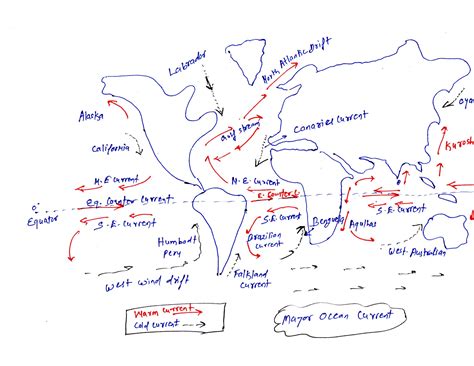 Labrador
North Atlantic Drift
Alaska
Gulf stream
Oya
California
Canaries Current
Kurosh
N.E Current
N.E. Current
eq. Counter Current
e. Counter C
0°
Equator
S.E. Current
S.E. Current
S.E. Current
Humboldt
Peru
Brazilian
Current
Benguela
Agulhas
West Australian
West wind drift
Falkland
Current
Warm Current
Cold current
Major Ocean Current